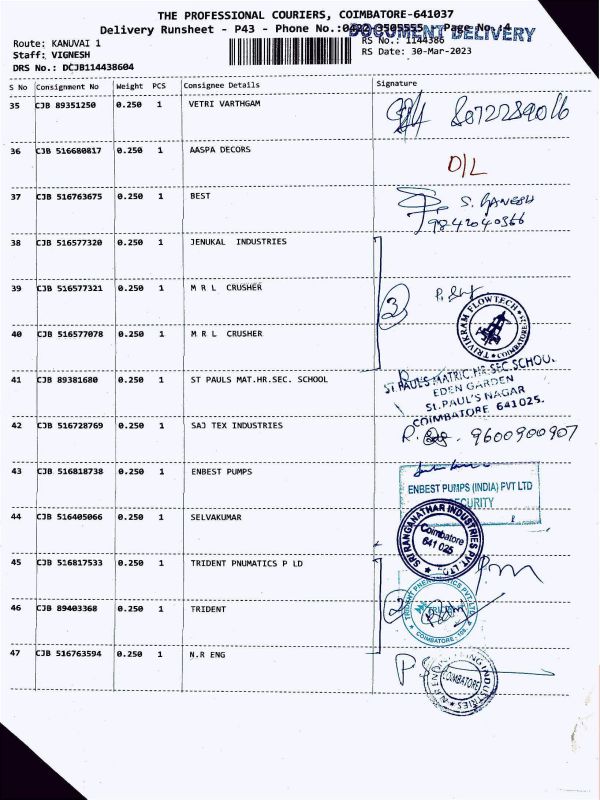 THE PROFESSIONAL COURIERS, COIMBATORE-641037
Delivery Runsheet - P43 - Phone No.:0422-3505555 Page No.:4
DOCUMENT DELIVERY
Route: KANUVAI 1
RS No.: 1144386
Staff: VIGNESH
RS Date: 30-Mar-2023
DRS No.: DCJB114438604
S No Consignment No Weight PCS Consignee Details Signature
35 CJB 89351250 0.250 1 VETRI VARTHGAM 8072289016
36 CJB 516680817 0.250 1 AASPA DECORS D/L
37 CJB 516763675 0.250 1 BEST S. GANESH
9842040366
38 CJB 516577320 0.250 1 JENUKAL INDUSTRIES
39 CJB 516577321 0.250 1 M R L CRUSHER 3
TRIVIKRAM FLOWTECH
COIMBATORE
40 CJB 516577078 0.250 1 M R L CRUSHER
41 CJB 89381680 0.250 1 ST PAULS MAT.HR.SEC. SCHOOL
ST.PAUL'S MATRIC.HR.SEC.SCHOOL
EDEN GARDEN
ST.PAUL'S NAGAR
COIMBATORE 641025.
42 CJB 516728769 0.250 1 SAJ TEX INDUSTRIES 9600900907
43 CJB 516818738 0.250 1 ENBEST PUMPS
ENBEST PUMPS (INDIA) PVT LTD
SECURITY
44 CJB 516405066 0.250 1 SELVAKUMAR
SRI RANGANATHAR INDUSTRIES PVT. LTD.
Coimbatore
641 025
45 CJB 516817533 0.250 1 TRIDENT PNUMATICS P LD
46 CJB 89403368 0.250 1 TRIDENT 2
TRIDENT PNEUMATICS PVT.LTD.
TRIDENT
COIMBATORE
47 CJB 516763594 0.250 1 N.R ENG
COIMBATORE
INDUSTRIES